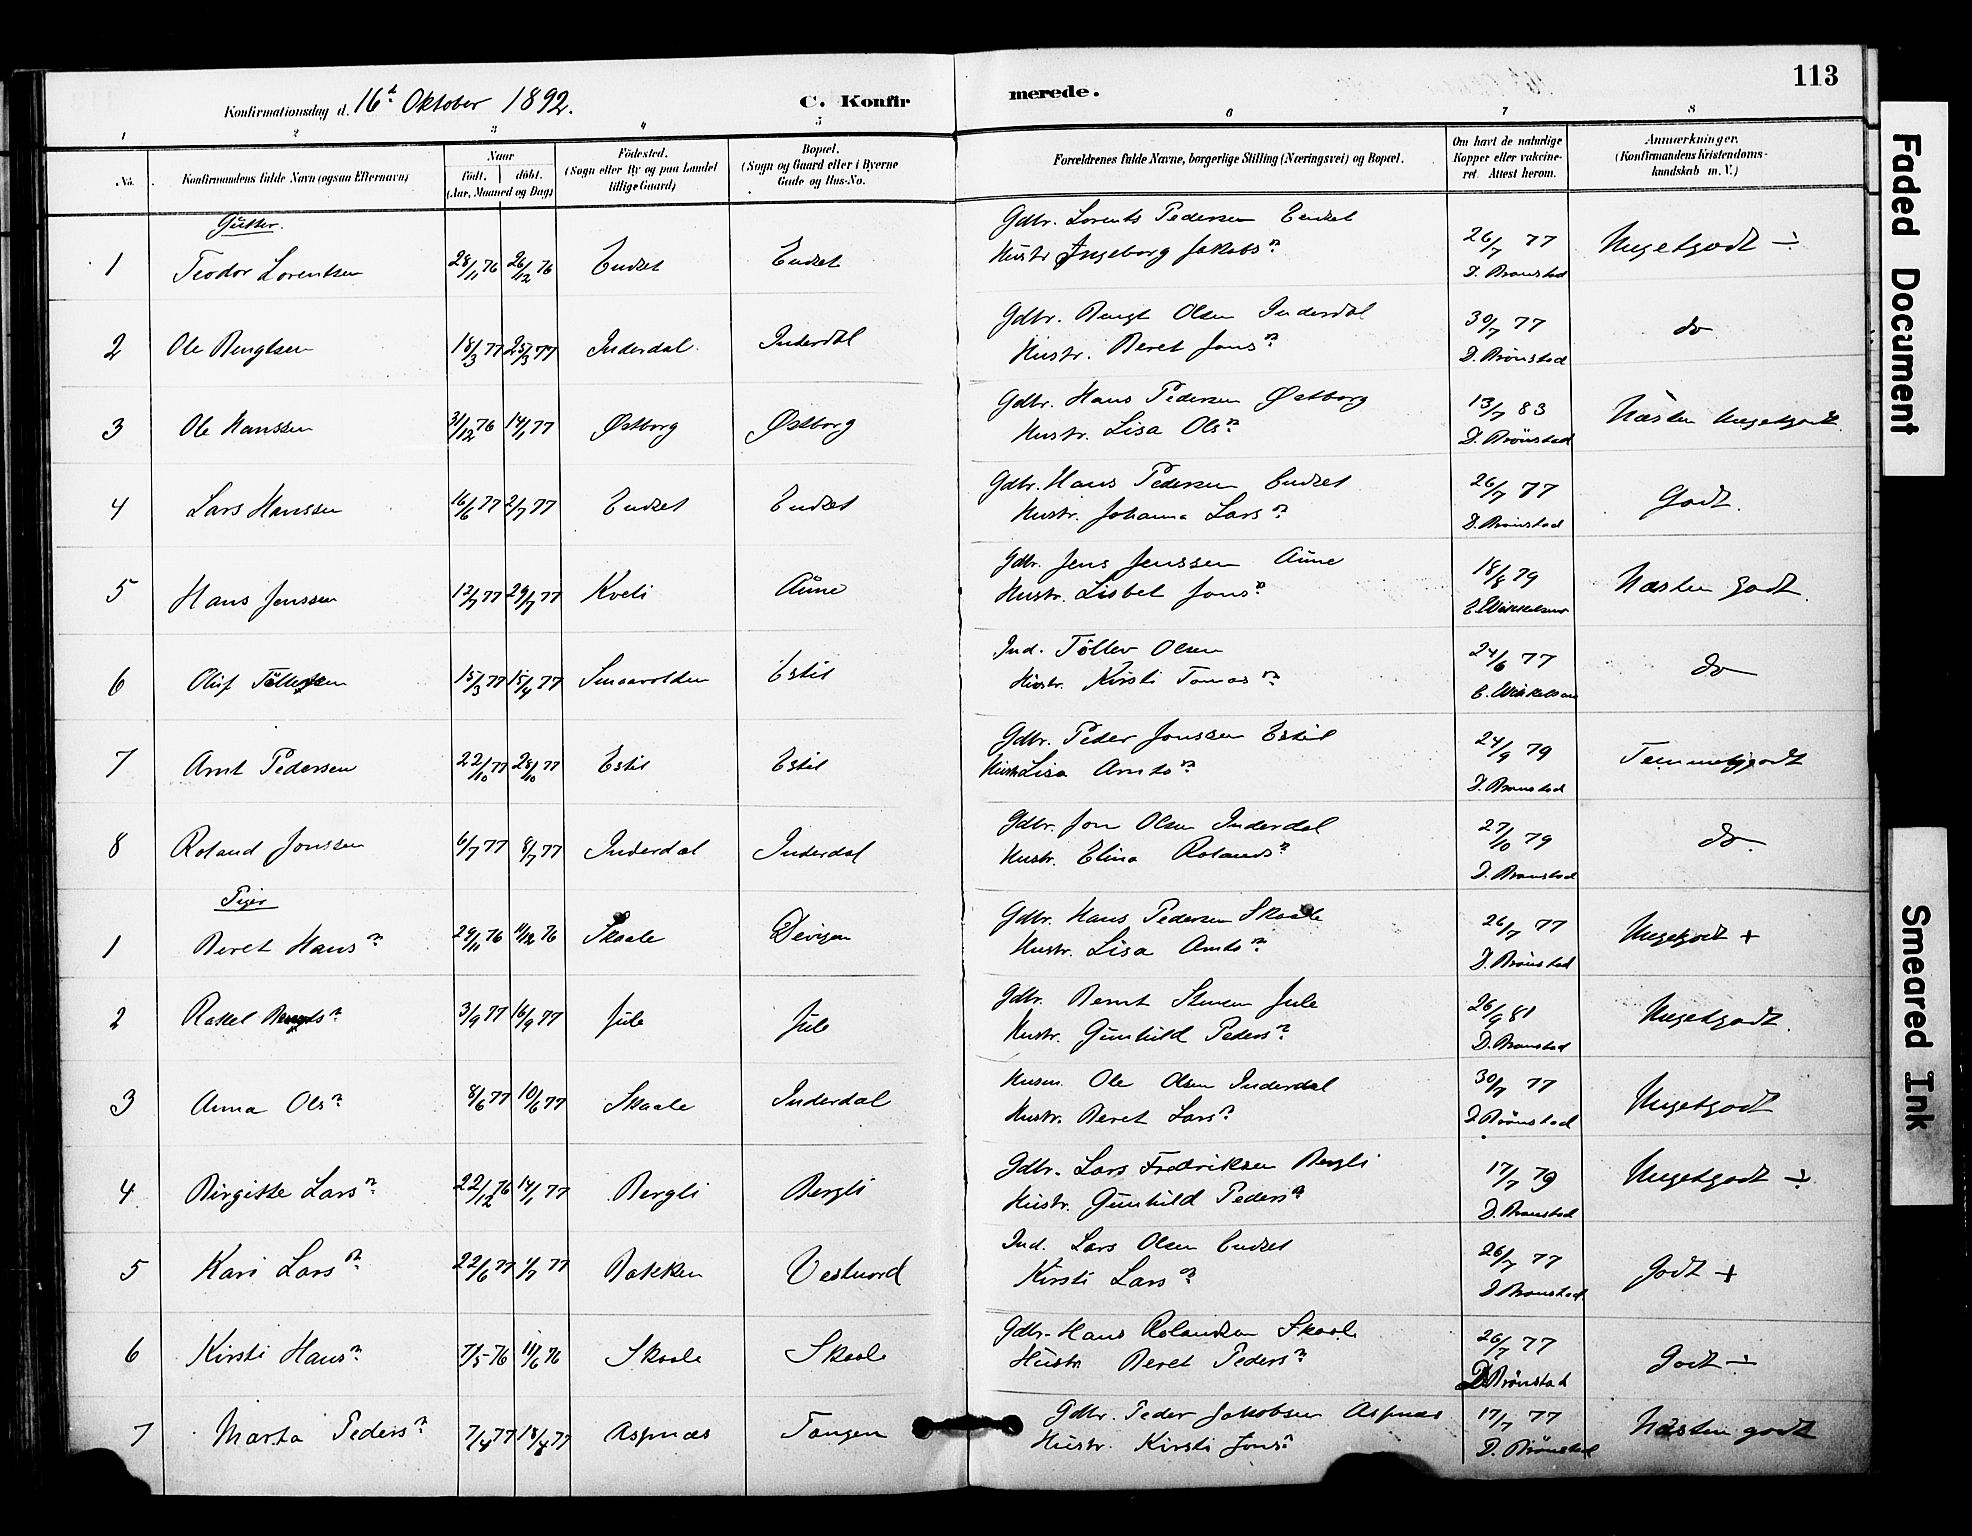 113
Konfirmationsdag d. 16d Oktober 1892. C. Konfirmerede.
1 2 3 4 5 6 7 8
No. Konfirmandens fulde Navn (ogsaa Efternavn) Naar født. døbt. (Aar, Maaned og Dag) Fødested. (Sogn eller By og paa Landet tillige Gaard) Bopæl. (Sogn og Gaard eller i Byerne Gade og Hus-No. Forældrenes fulde Navne, borgerlige Stilling (Næringsvei) og Bopæl. Om havt de naturlige Kopper eller vakcineret. Attest herom. Anmærkninger. (Konfirmandens Kristendomskundskab m. V.)
Gutter.
1 Teodor Lorentsen 28/11 76 26/12 76 Endset Endset Gdbr. Lorents Pedersen Endset 26/7 77 Megetgodt ÷
Hustr Ingeborg Jakobsn. D. Brønstad
2 Ole Bengtsen 18/3 77 25/3 77 Inderdal Inderdal Gdbr. Bengt Olsen Inderdal 30/7 77 do
Hustr. Beret Jonsn. D. Brønstad
3 Ole Hanssen 31/12 76 14/1 77 Østborg Østborg Gdbr. Hans Pedersen Østborg 13/7 83 Næsten Megetgodt.
Hustr. Lisa Olsn. D. Brønstad
4 Lars Hanssen 16/6 77 2/7 77 Endset Endset Gdbr. Hans Pedersen Endset 26/7 77 Godt.
Hustr. Johanna Larsn. D. Brønstad
5 Hans Jenssen 12/7 77 29/7 77 Kveli Aune Gdbr. Jens Jenssen Aune 18/8 79 Næsten godt.
Hustr. Lisbet Jonsn.
6 Oluf Tøllefsen 15/3 77 15/4 77 Smaavolden Estil Ind. Tøllev Olsen 24/6 77 do
Hustr. Kirsti Tomasn.
7 Arnt Pedersen 22/10 77 28/10 77 Estil Estil Gdbr. Peder Jonssen Estil 24/9 79 Temmeliggodt
Hustr Lisa Arntsn. D. Brønstad
8 Roland Jonssen 6/7 77 8/7 77 Inderdal Inderdal Gdbr. Jon Olsen Inderdal 27/10 79 do.
Hustr. Elina Rolandsn. D. Brønstad
Piger
1 Beret Hansn. 29/11 76 4/12 76 Skaale Devigen Gdbr. Hans Pedersen Skaale 26/7 77 Megetgodt +
Hustr. Lisa Arntsn. D. Brønstad
2 Rakel 3/9 77 16/9 77 Jule Jule Gdbr. Bernt Jule 26/9 81 Megetgodt.
Hustr. Gunhild Pedersn. D. Brønstad
3 Anna Olsn. 8/6 77 10/6 77 Skaale Inderdal Husm. Ole Olsen Inderdal 30/7 77 Megetgodt
Hustr. Beret Larsn. D Brønstad
4 Birgitte Larsn. 22/12 76 14/1 77 Bergli Bergli Gdbr. Lars Fredriksen Bergli 17/7 79 Megetgodt ÷
Hustr. Gunhild Pedersn. D. Brønstad
5 Kari Larsn. 22/6 77 1/7 77 Bakken Vestnord Ind. Lars Olsen Endset 26/7 77 Godt +
Kirsti Larsn. D Brønstad
6 Kirsti Hansn. 7/5 76 11/6 76 Skaale Skaale Gdbr. Hans Rolandsen Skaale 26/7 77 Godt ÷
Hustr Beret Pedersn. D. Brønstad
7 Marta Pedersn. 7/4 77 18/4 77 Aspnæs Tangen Gdbr. Peder Jakobsen Aspnæs 17/7 77 Næsten godt
Hustr. Kirsti Jonsn. D. Brønstad
Faded Document
Smeared Ink